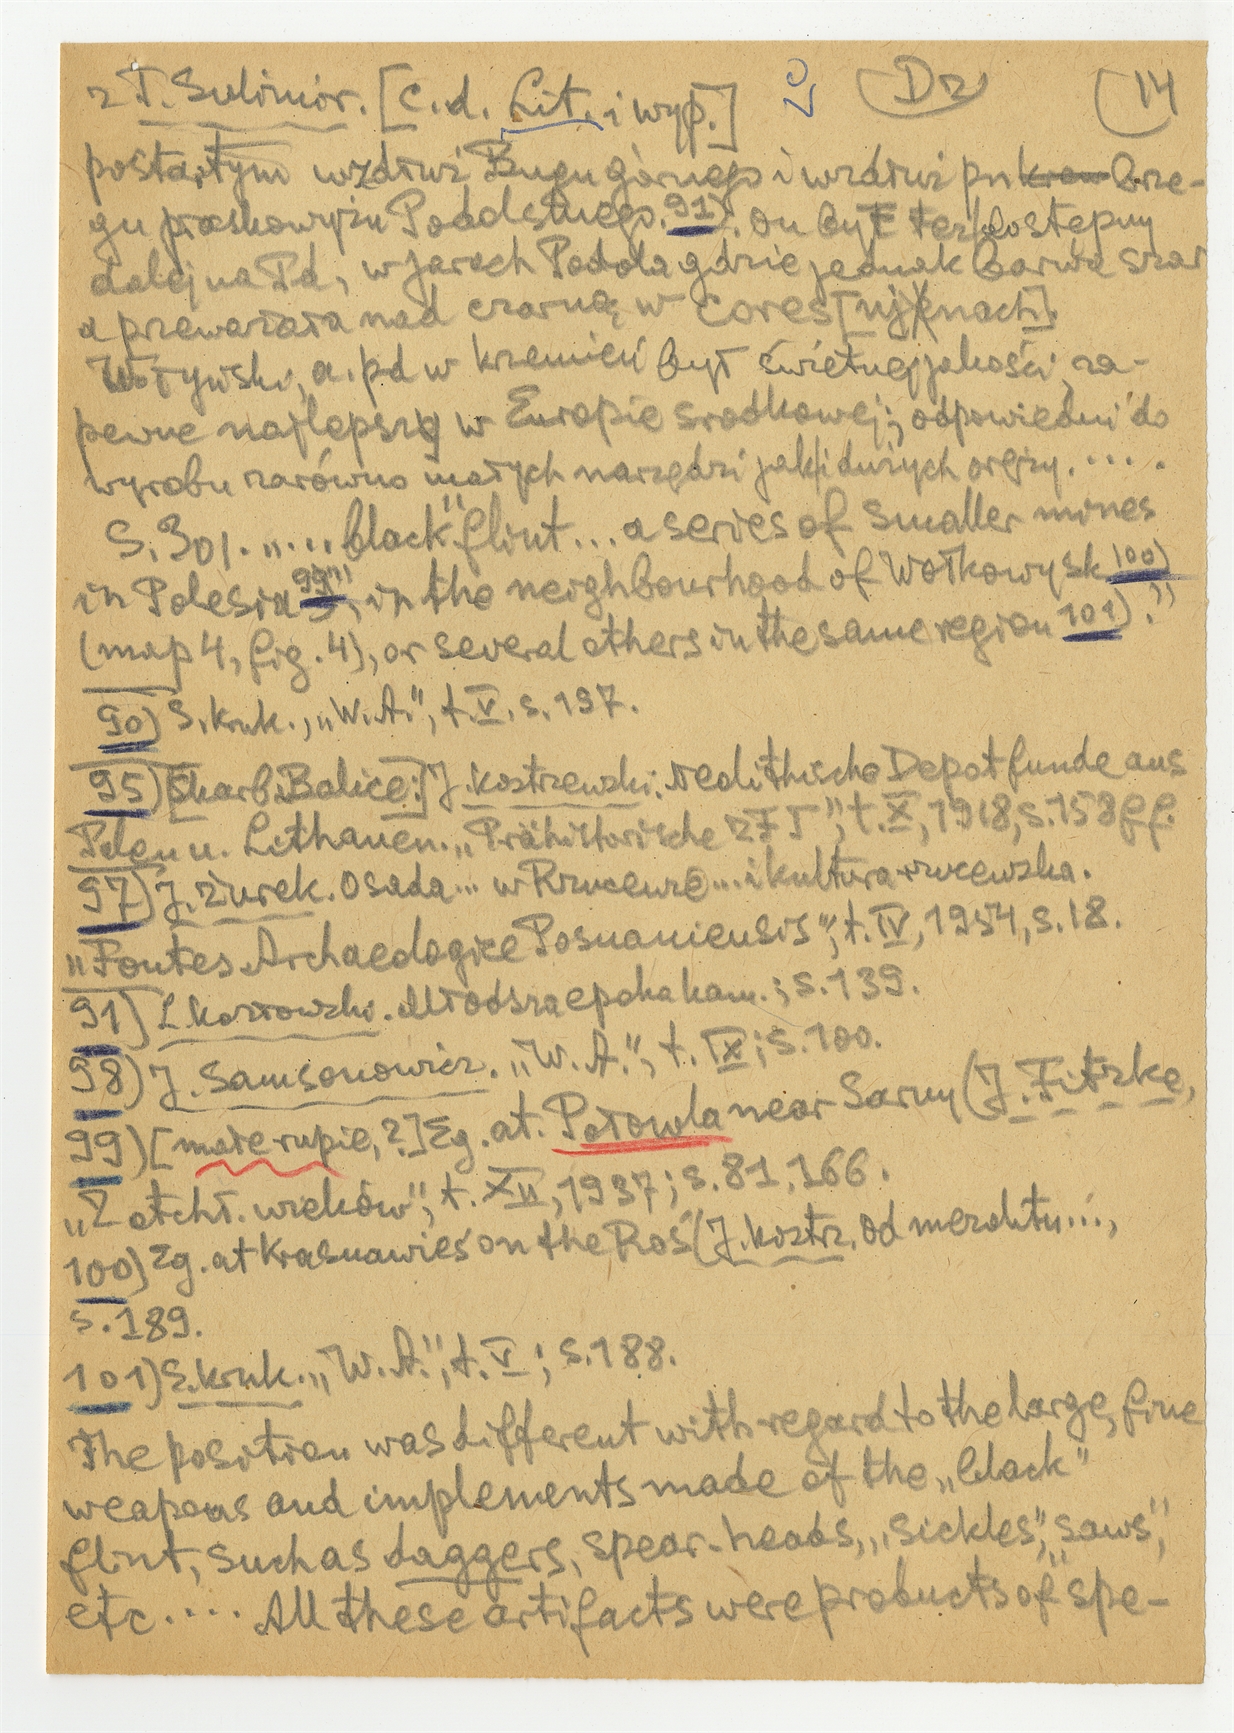 z T. Sulimir. [c.d. Lit. i wyp.] Dz 14
postartym wzdłuż Bugu górnego i wzdłuż pn brze-
gu płaskowyżu Podolskiego. 91). On był też dostępny
dalej na Pd, w jarach Podola gdzie jednak barwa szar
a przeważała nad czarną w cores [nach].
Wołyński, a. pd w krzemień był świetnej jakości, za-
pewne najlepszy w Europie środkowej; odpowiedni do
wyrobu zarówno małych narzędzi jak i dużych oręży. ....
S. 301. „... black" flint... a series of smaller mines
in Polesia 99)", in the neighbourhood of Wołkowysk 100)
(map 4, fig. 4), or several others in the same region 101)."
90) S. Kruk., „W.A.", t. V. s. 197.
95) [Skarb. Balice:] J. Kostrzewski. Neolithische Depotfunde aus
Polen u. Lithauen. „Prähistorische ZFT", t. X, 1918, s. 158 ff.
97) J. Żurek. Osada... w Rzucewie... i kultura rzucewska.
„Fontes Archaeologice Posnaniensis", t. IV, 1954, s. 18.
91) L. Kozłowski. Młodsza epoka kam.; s. 139.
98) J. Samsonowicz. „W.A.", t. IX; s. 100.
99) [małe rupie, ?] Eg. at. Potowla near Sarny (J. Fitzke,
„Z otchł. wieków", t. XII, 1937; s. 81, 166.
100) Eg. at Krasnawieś on the Roś (J. Kostrz. Od mezolitu...,
s. 189.
101) S. Kruk. „W.A.", t. V; s. 188.
The position was different with regard to the large, fine
weapons and implements made of the „black"
flint, such as daggers, spear-heads, „sickles", „saws",
etc.... All these artifacts were products of „spe-